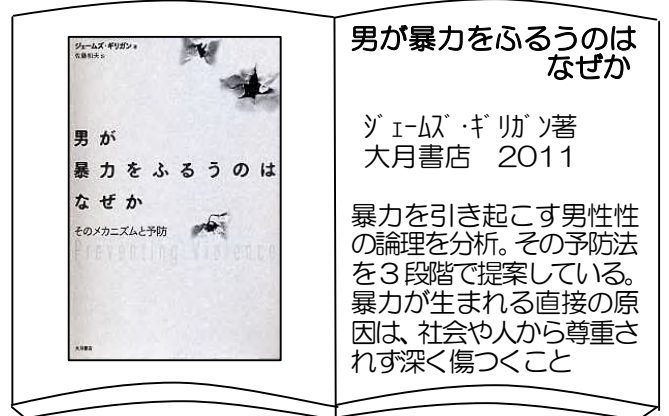 ジェームズ・ギリガン 著
佐藤和夫 訳
男が
暴力をふるうのは
なぜか
そのメカニズムと予防
Preventing Violence
大月書店
男が暴力をふるうのは
なぜか
ｼﾞｪｰﾑｽﾞ・ｷﾞﾘｶﾞﾝ著
大月書店　2011
暴力を引き起こす男性性
の論理を分析。その予防法
を３段階で提案している。
暴力が生まれる直接の原
因は、社会や人から尊重さ
れず深く傷つくこと